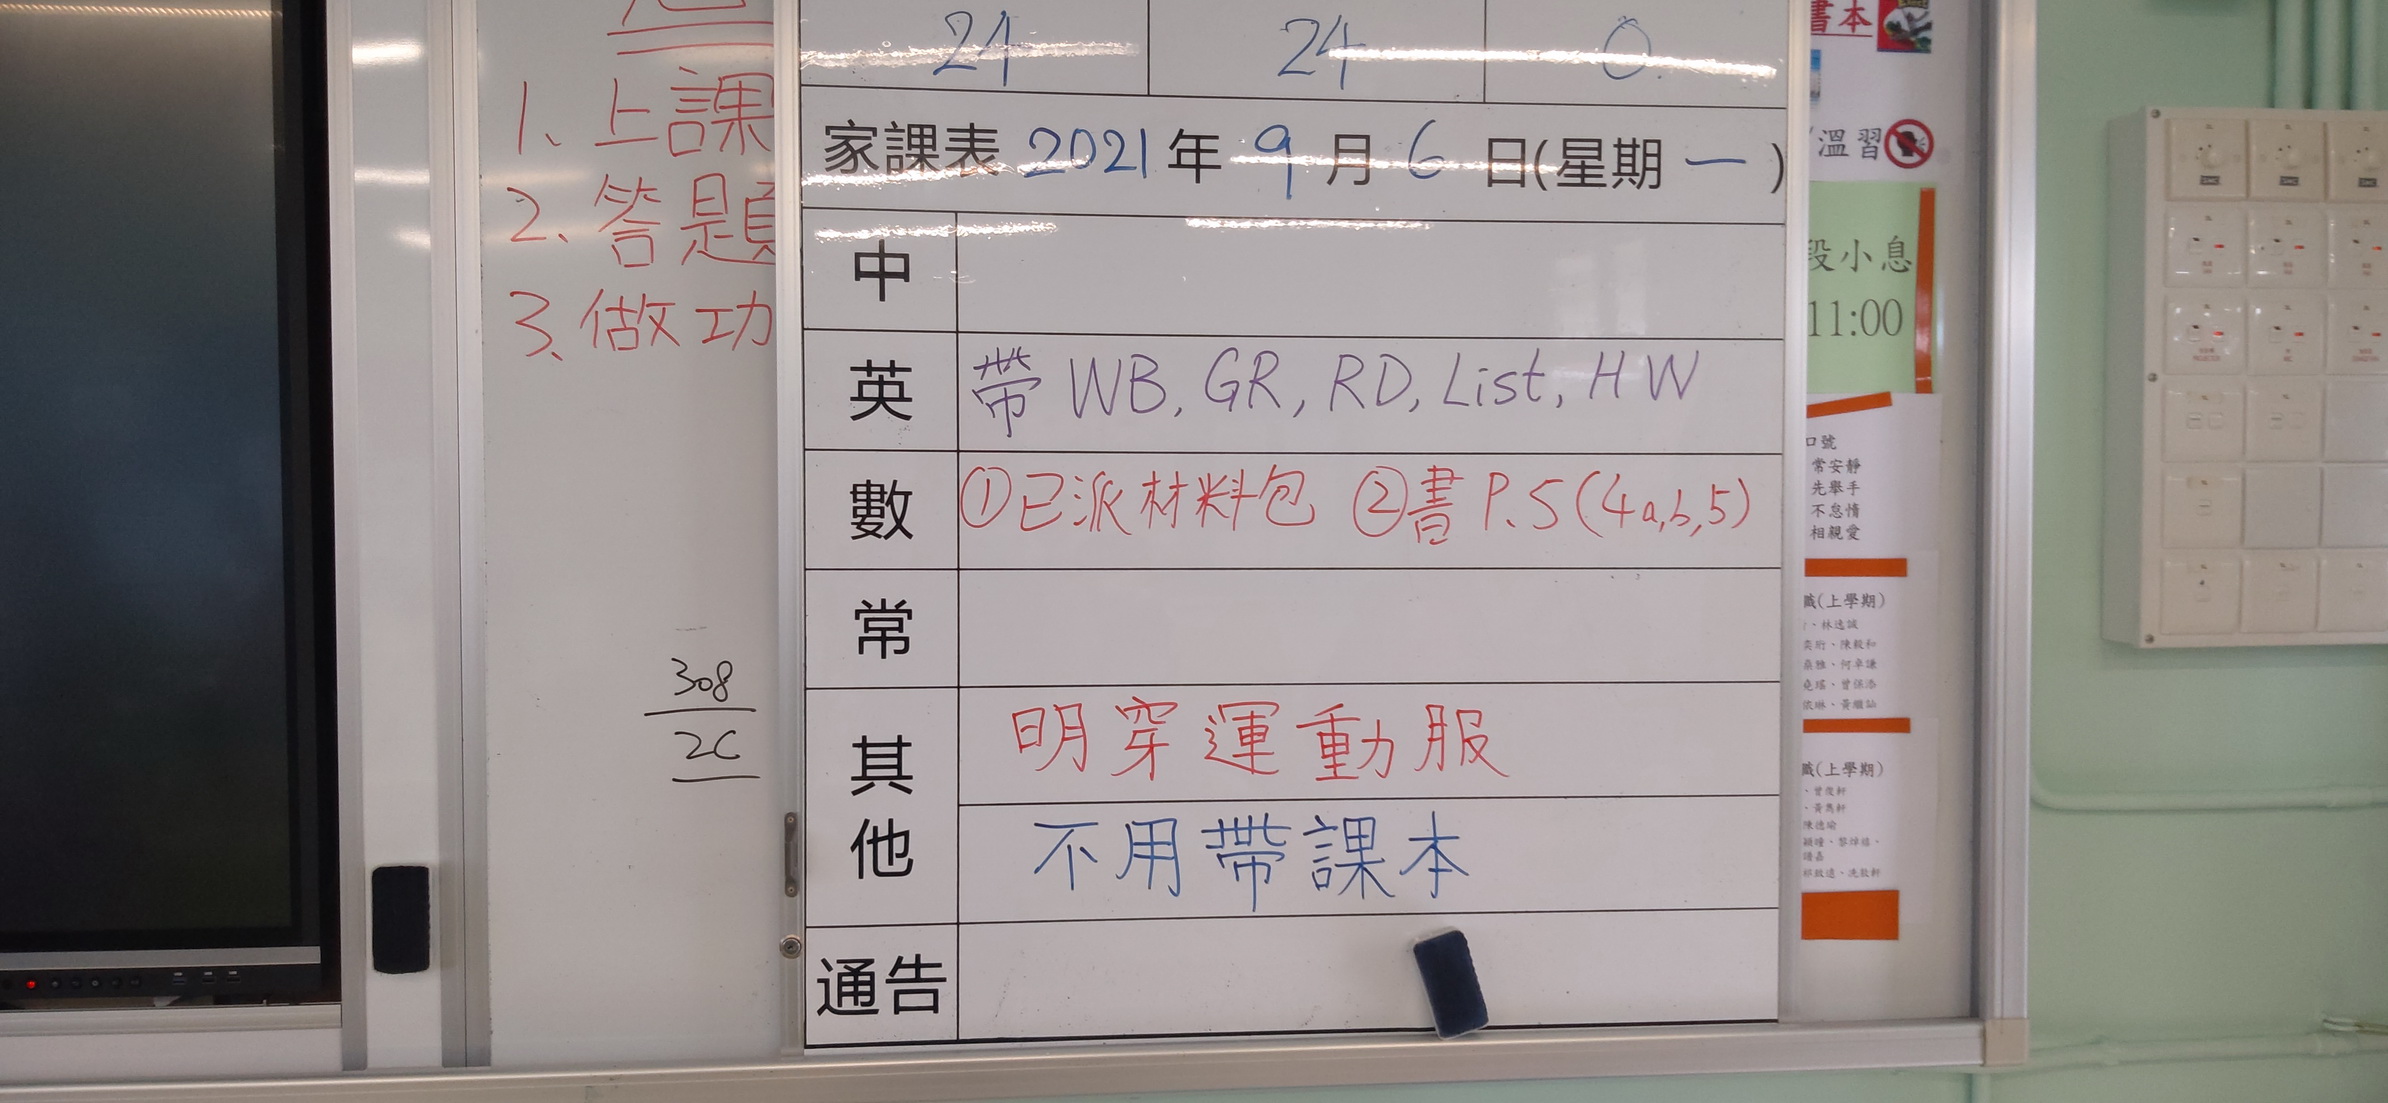 24 24 0
家課表 2021年 9月 6日(星期一)
中
英 帶 WB, GR, RD, List, HW
數 ①已派材料包 ②書 P.5(4a,b,5)
常
其他 明穿運動服
不用帶課本
通告
1、上課
2、答題
3、做功
308
2C
書本
溫習
段小息
11:00
口號
常安靜
先舉手
不怠惰
相親愛
職(上學期)
、林逸誠
職(上學期)